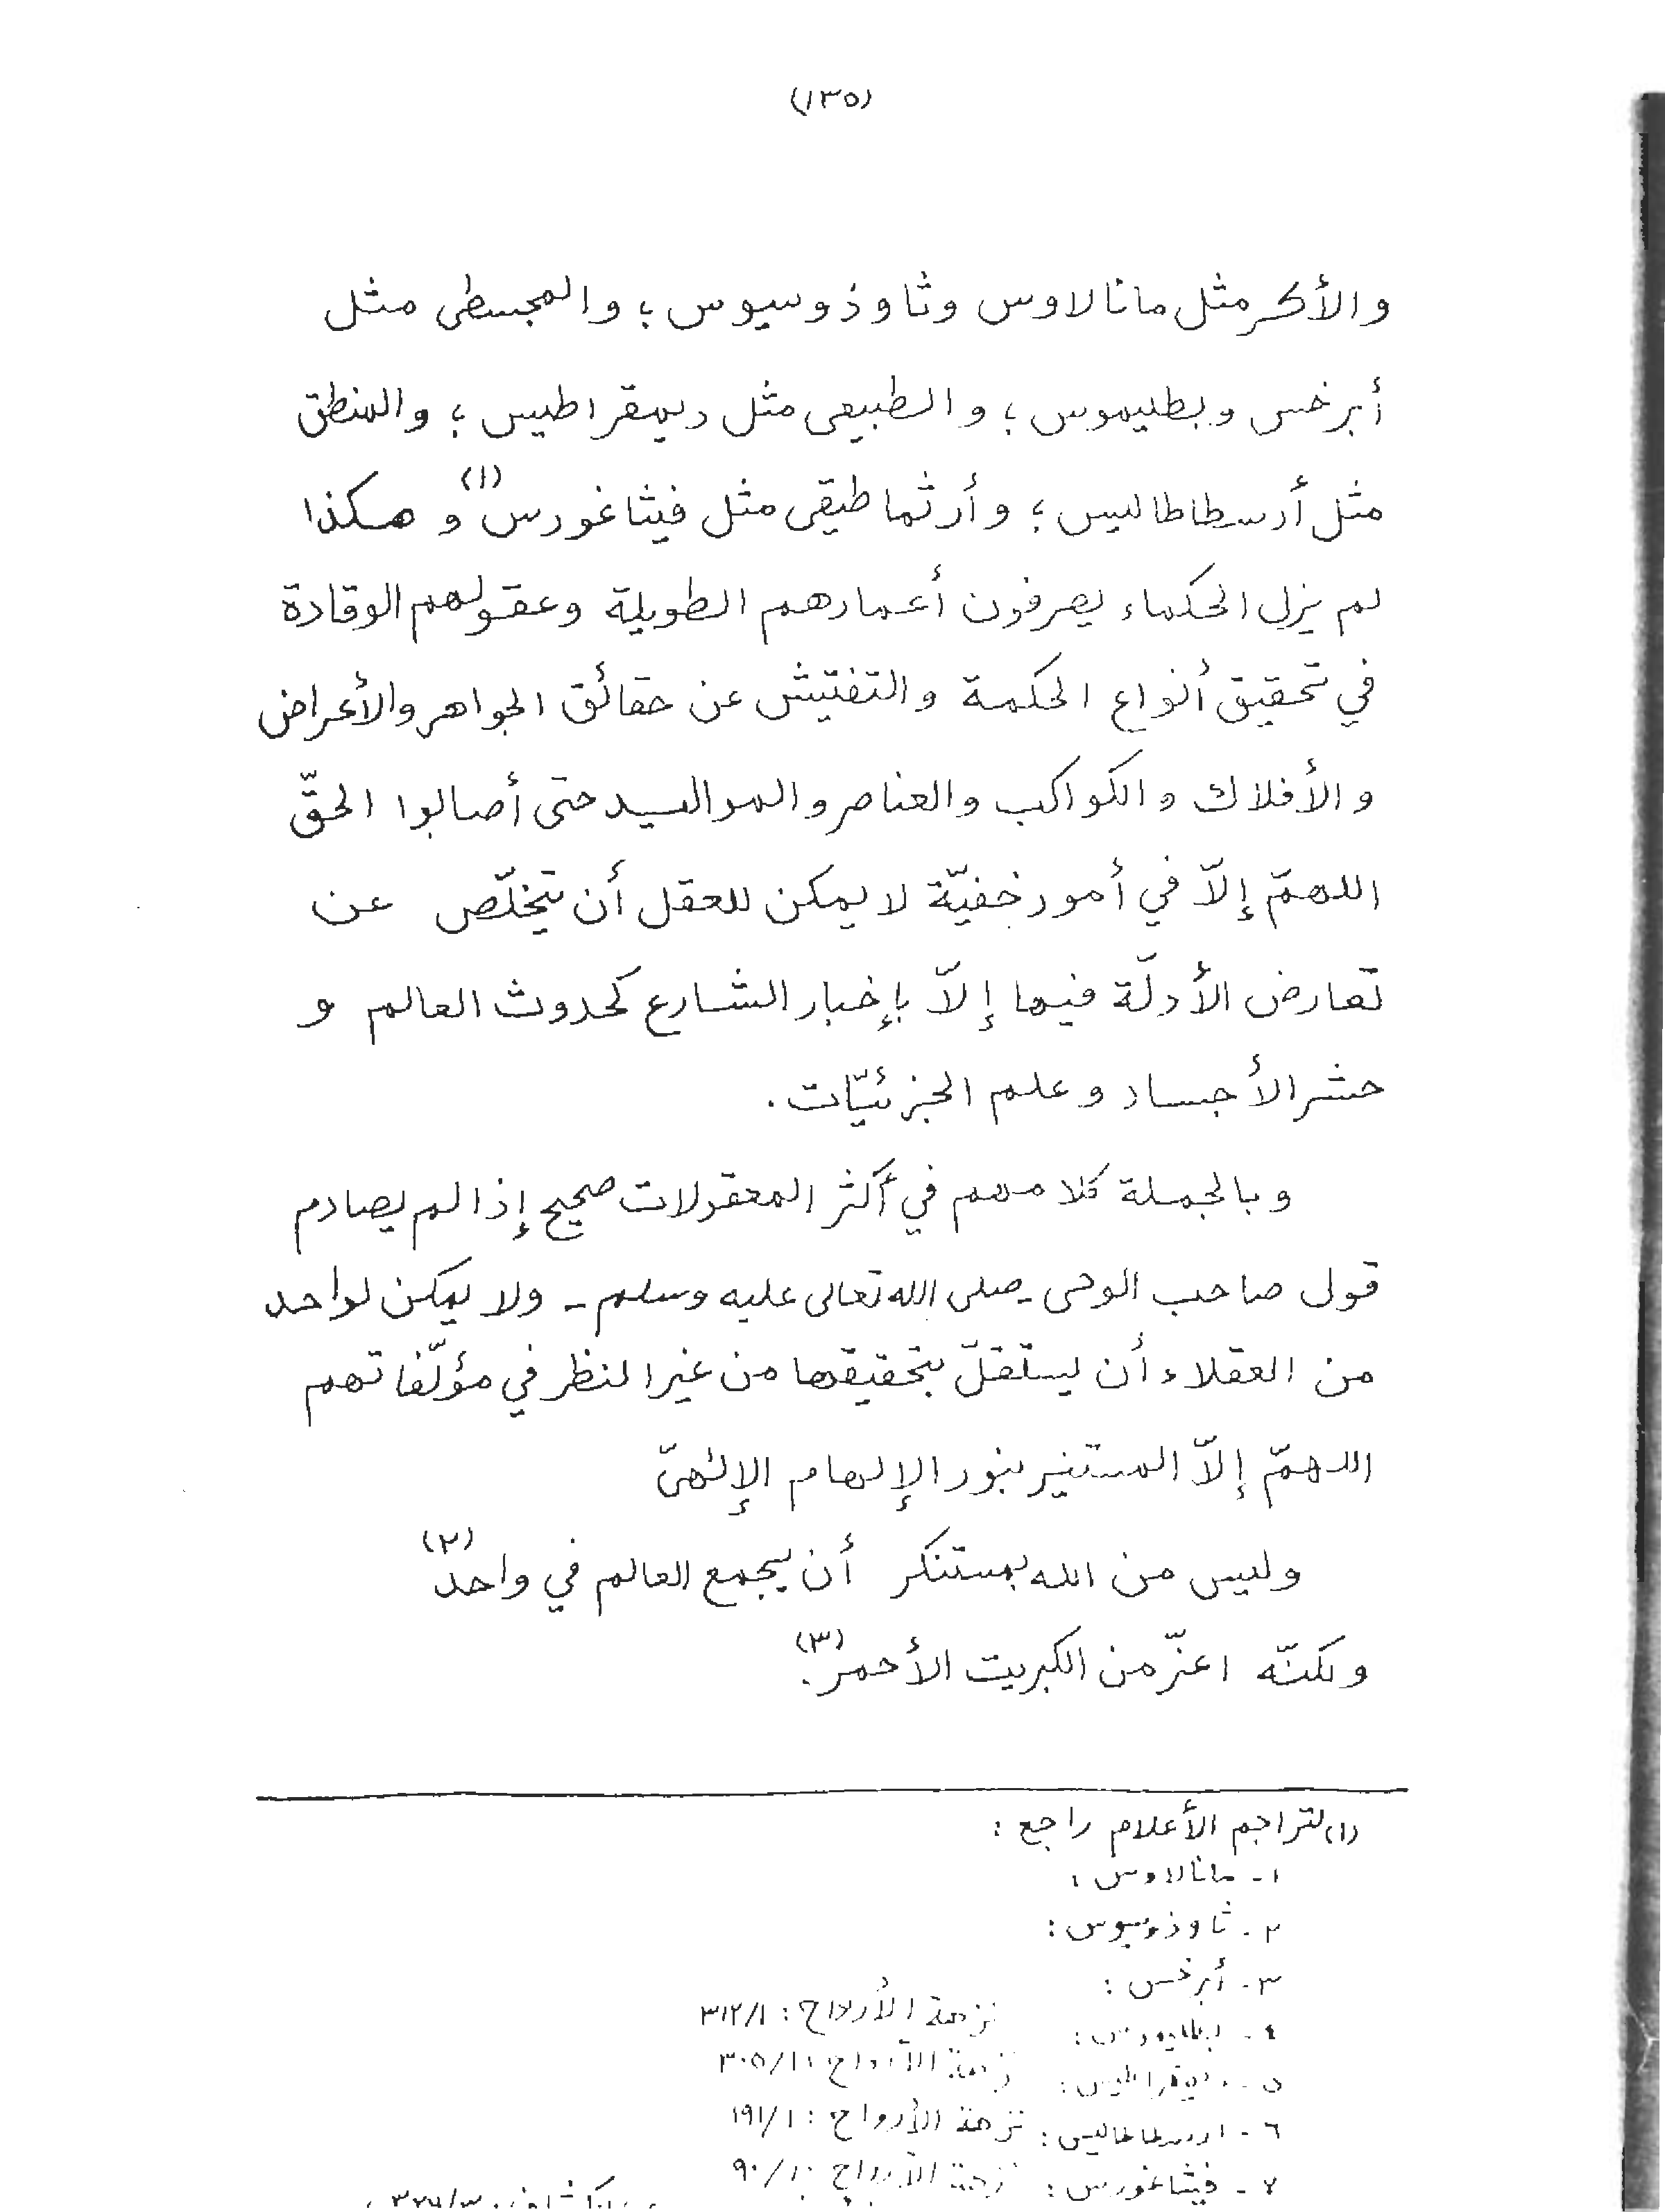 (١٣٥)
والأكر مثل مانالاوس وثاوذوسيوس ؛ والمجسطى مثل
أبرخس وبطليموس ؛ والطبيعى مثل ديمقراطيس ؛ والمنطق
مثل أرسطاطاليس ؛ وأرثماطيقى مثل فيثاغورس (١) و هكذا
لم يزل الحكماء يصرفون أعمارهم الطويلة وعقولهم الوقادة
في تحقيق أنواع الحكمة والتفتيش عن حقائق الجواهر والأعراض
والأفلاك والكواكب والعناصر والمواليد حتى أصابوا الحقّ
اللهمّ إلاّ في أمور خفيّة لا يمكن للعقل أن يتخلّص عن
تعارض الأدلّة فيها إلاّ بإخبار الشارع كحدوث العالم و
حشر الأجساد وعلم الجزئيّات .
وبالجملة كلامهم في أكثر المعقولات صحيح إذا لم يصادم
قول صاحب الوحى - صلى الله تعالى عليه وسلم - ولا يمكن لواحد
من العقلاء أن يستقلّ بتحقيقها من غير النظر في مؤلّفاتهم
اللهمّ إلاّ المستنير بنور الإلهام الإلٰهىّ
وليس من الله بمستنكر أن يجمع العالم في واحد (٢)
ولكنّه اعزّ من الكبريت الأحمر (٣) .
(١) لتراجم الأعلام راجع :
١ - مانالاوس :
٢ - ثاوذوسيوس :
٣ - أبرخس :
٤ - بطليموس : نزهة الأرواح : ٣١٢/١
٥ - ديمقراطيس : نزهة الأرواح : ٣٠٥/١
٦ - ارسطاطاليس : نزهة الأرواح : ١٩١/١
٧ - فيثاغورس : نزهة الأرواح : ٩٠/١